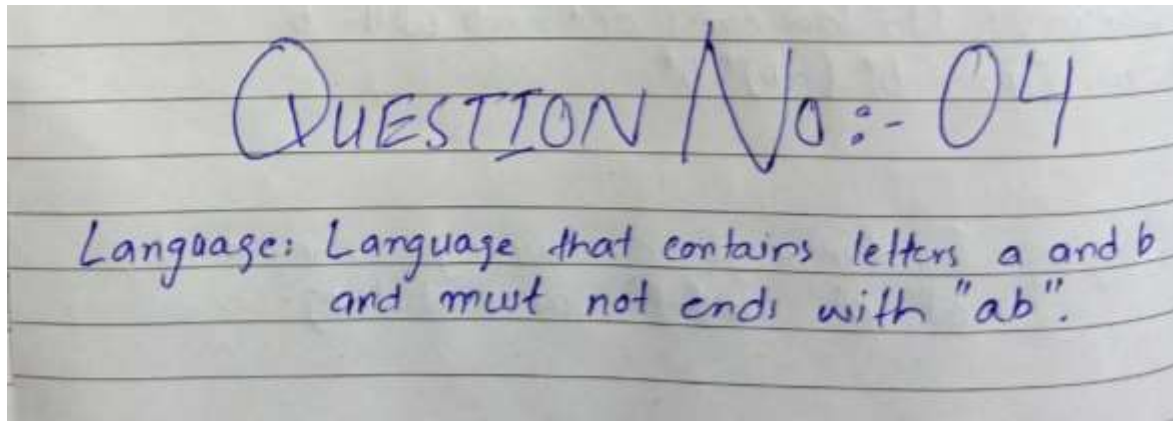 QUESTION No:- 04
Langaage: Language that contains letters a and b
and must not ends with "ab".